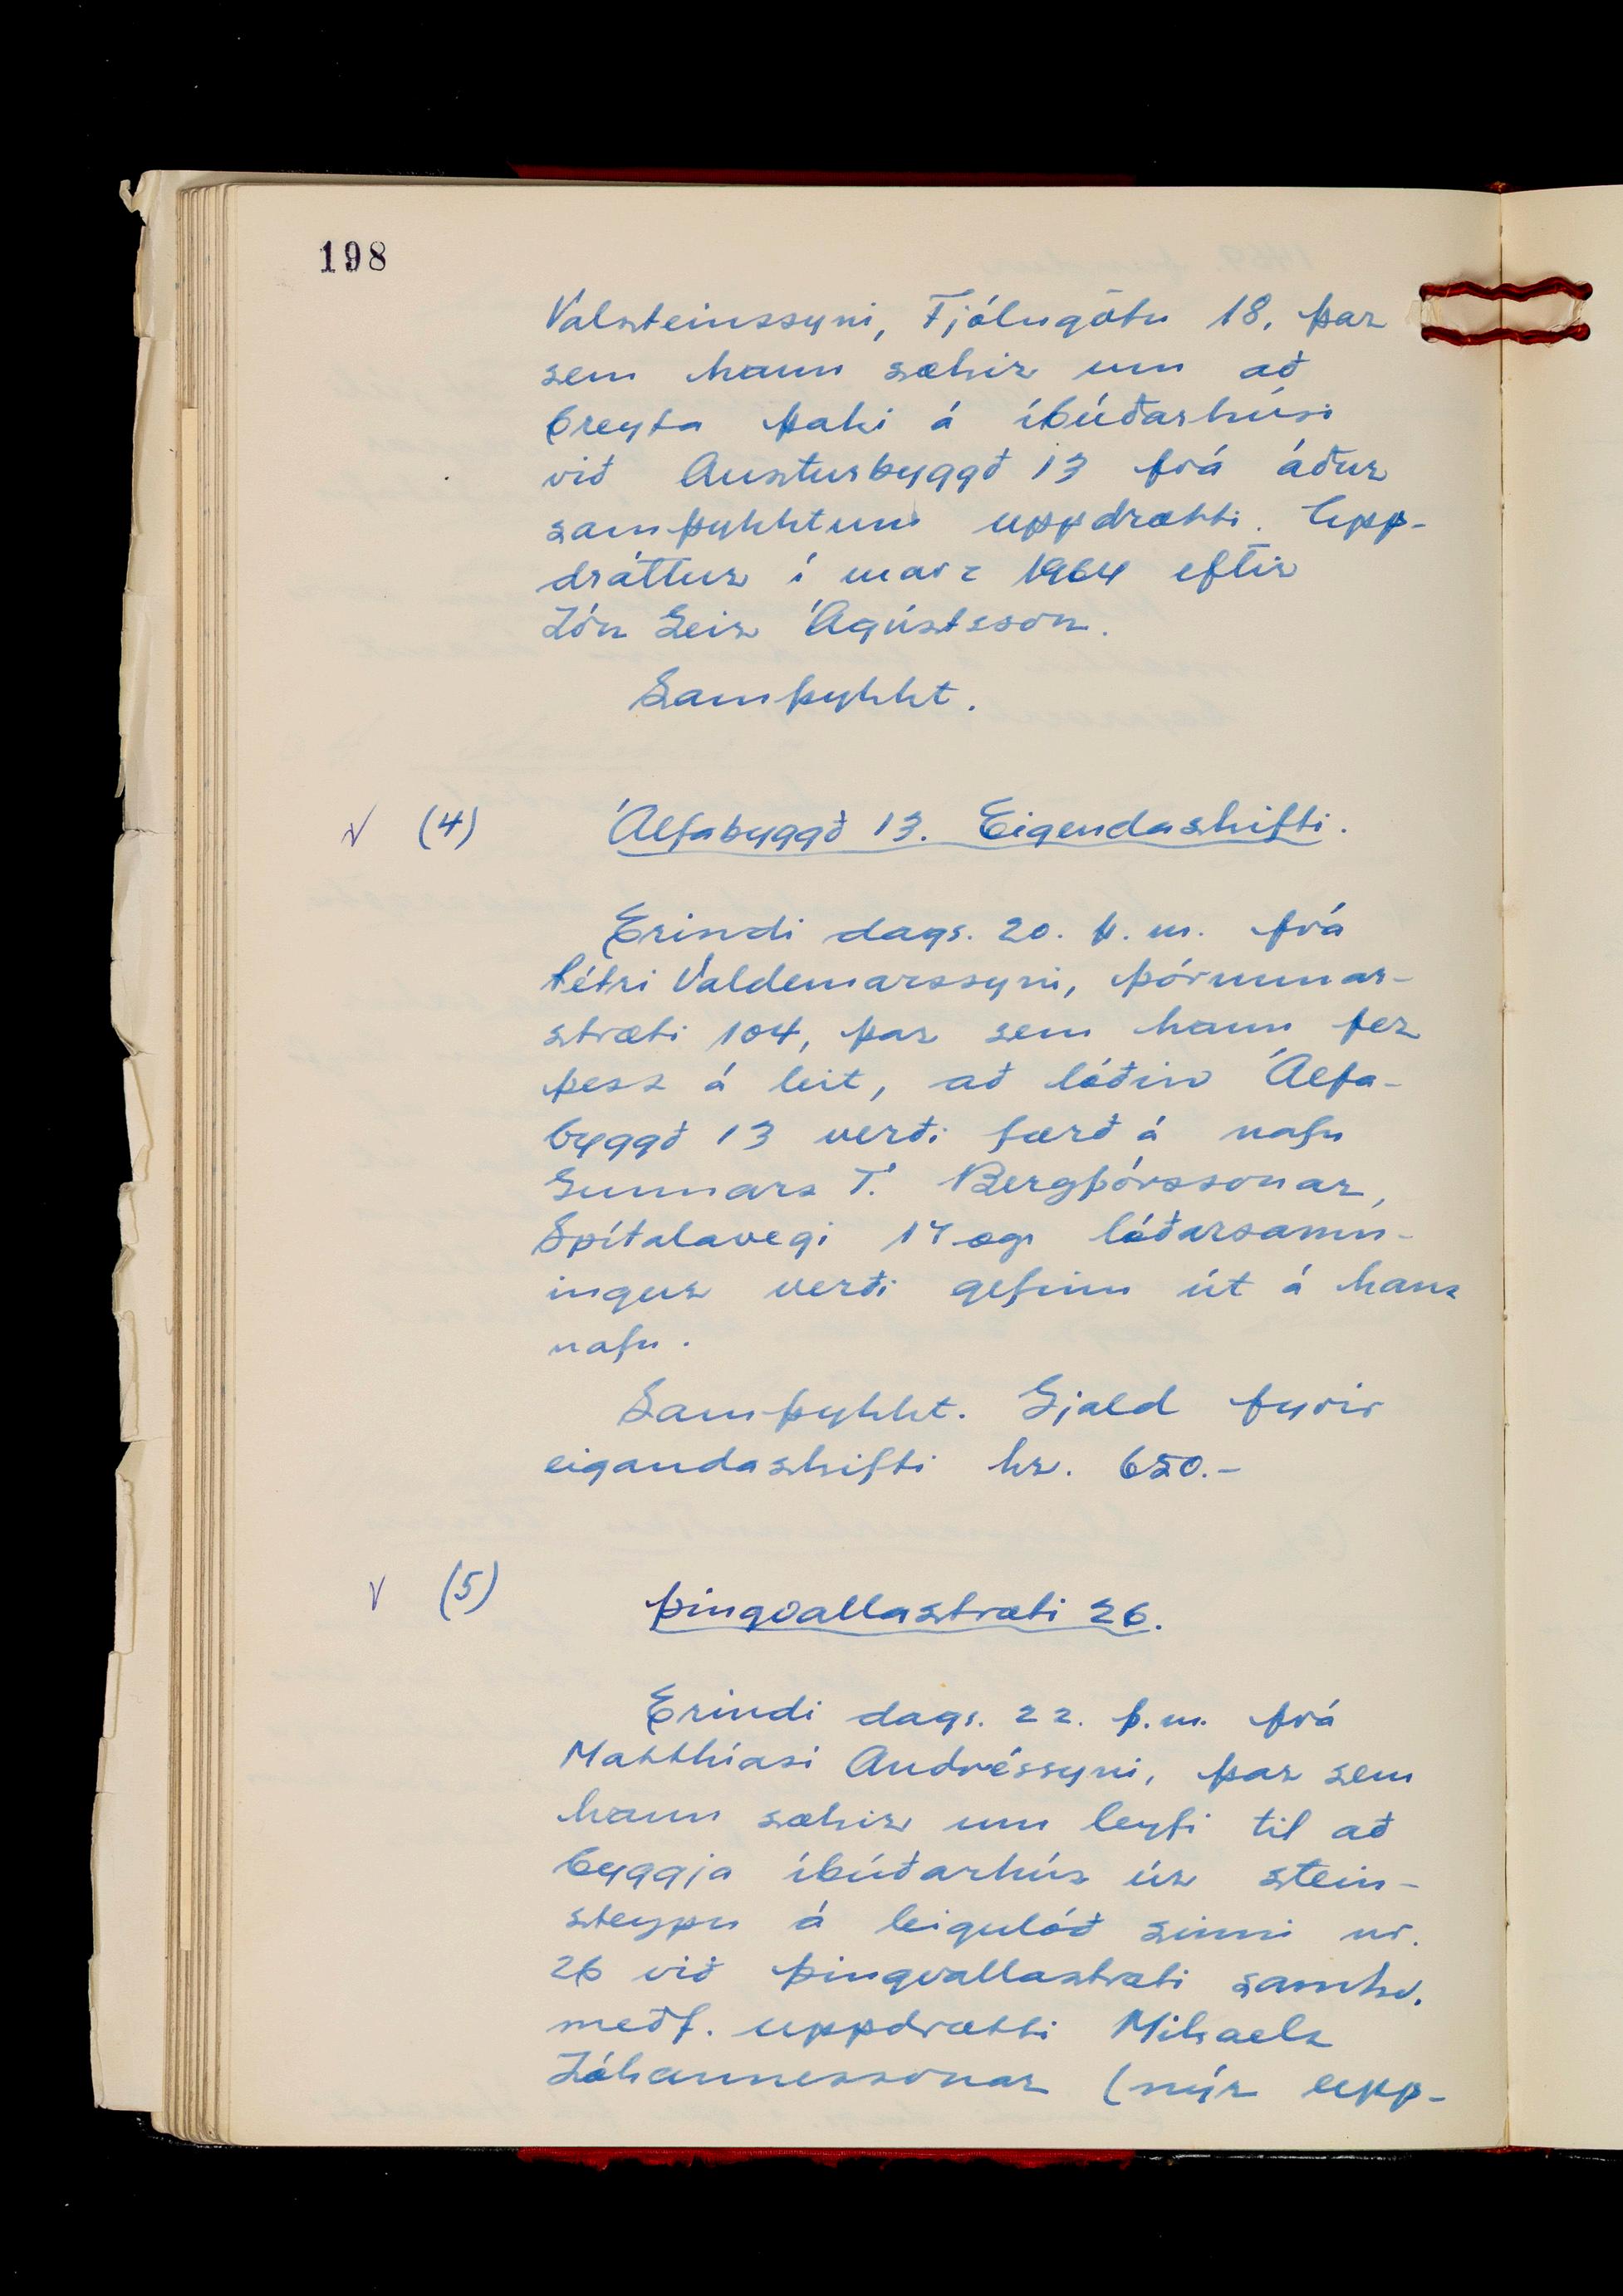 198
Valsteinssyni, Fjólugötu 18, þar
sem hann sækir um að
breyta þaki á íbúðarhúsi
við Austurbyggð 13 frá áður
samþykktum uppdrætti. Upp-
dráttur í marz 1964 eftir
Jón Geir Ágústsson.
Samþykkt.
√ (4) Álfabyggð 13. Eigendaskifti.
Erindi dags. 20. þ.m. frá
Pétri Valdemarssyni, Þórunnar-
stræti 104, þar sem hann fer
þess á leit, að lóðin Álfa-
byggð 13 verði færð á nafn
Gunnars T. Bergþórssonar,
Spítalavegi 17 og lóðarsamn-
ingur verði gefinn út á hans
nafn.
Samþykkt. Gjald fyrir
eigandaskifti kr. 650.-
√ (5) Þingvallastræti 26.
Erindi dags. 22. þ.m. frá
Matthíasi Andréssyni, þar sem
hann sækir um leyfi til að
byggja íbúðarhús úr stein-
steypu á leigulóð sinni nr.
26 við Þingvallastræti samkv.
meðf. uppdrætti Mikaels
Jóhannessonar (nýr upp-